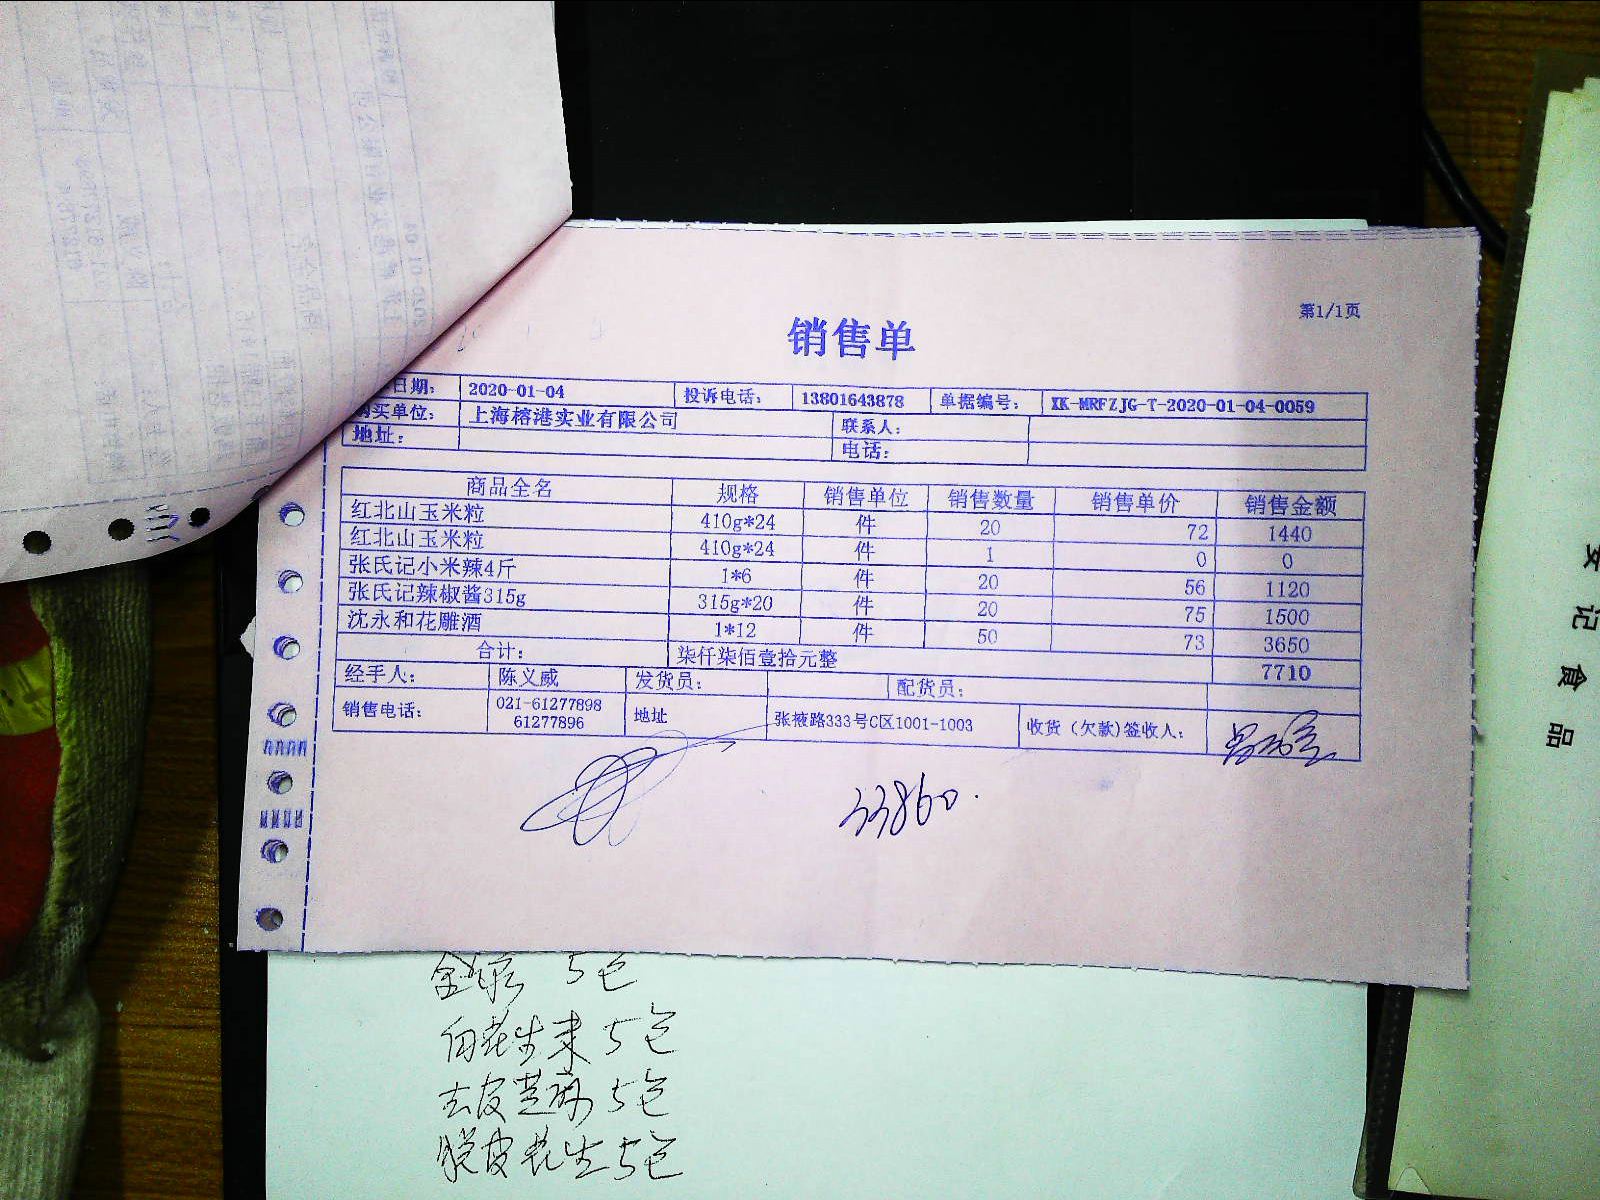 第1/1页
销售单
日期： 2020-01-04 投诉电话： 13801643878 单据编号： XK-MRFZJG-T-2020-01-04-0059
购买单位： 上海榕港实业有限公司 联系人：
地址： 电话：
商品全名 规格 销售单位 销售数量 销售单价 销售金额
红北山玉米粒 410g*24 件 20 72 1440
红北山玉米粒 410g*24 件 1 0 0
张氏记小米辣4斤 1*6 件 20 56 1120
张氏记辣椒酱315g 315g*20 件 20 75 1500
沈永和花雕酒 1*12 件 50 73 3650
合计： 柒仟柒佰壹拾元整 7710
经手人： 陈义威 发货员： 配货员：
销售电话： 021-61277898 61277896 地址 张掖路333号C区1001-1003 收货（欠款)签收人：
33860.
5包
白花生米 5包
去皮芝麻 5包
脱皮花生 5包
安记食品